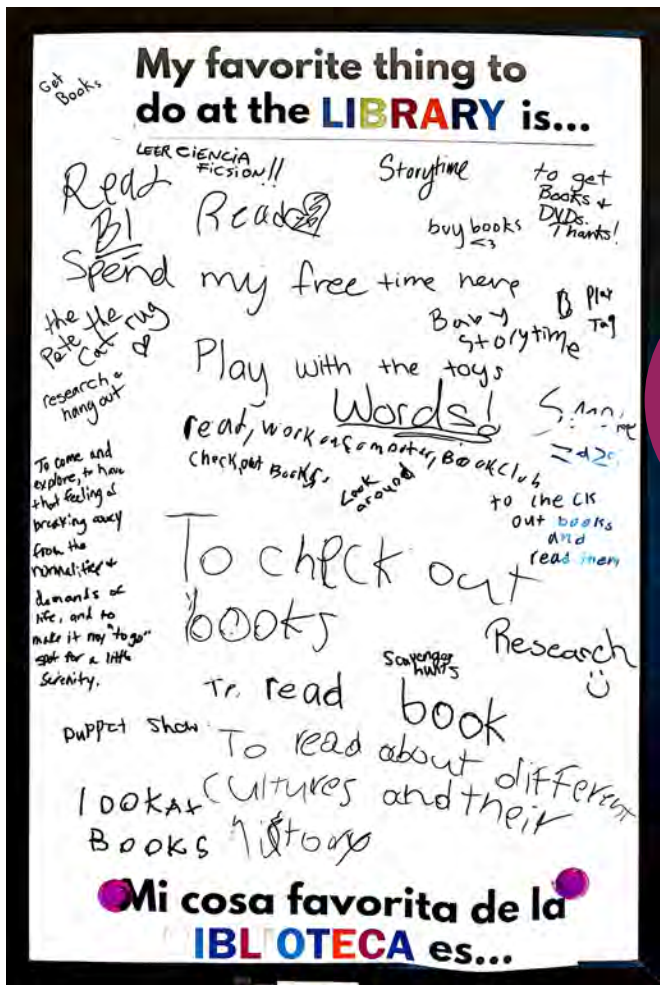 My favorite thing to
do at the LIBRARY is...
Get
Books
LEER CIENCIA
FICSION!!
Storytime
to get
Books &
DVDs.
Thanks!
Read
Read
buy books
<3
B1
Spend my free time here
the
Pete the
Cat rug
Baby
Storytime
Play
Tag
Play with the toys
research &
hang out
Words!
read, work on computer, Book Club
check out Books
Look
around
To come and
explore, to have
that feeling of
breaking away
from the
normalities &
demands of
life, and to
make it my "to go"
spot for a little
serenity.
to check
out books
and
read them
To check out
books
Research
Scavenger
hunts
To read
book
puppet show
To read about different
cultures and their
history
look At
Books
Mi cosa favorita de la
IBL OTECA es...